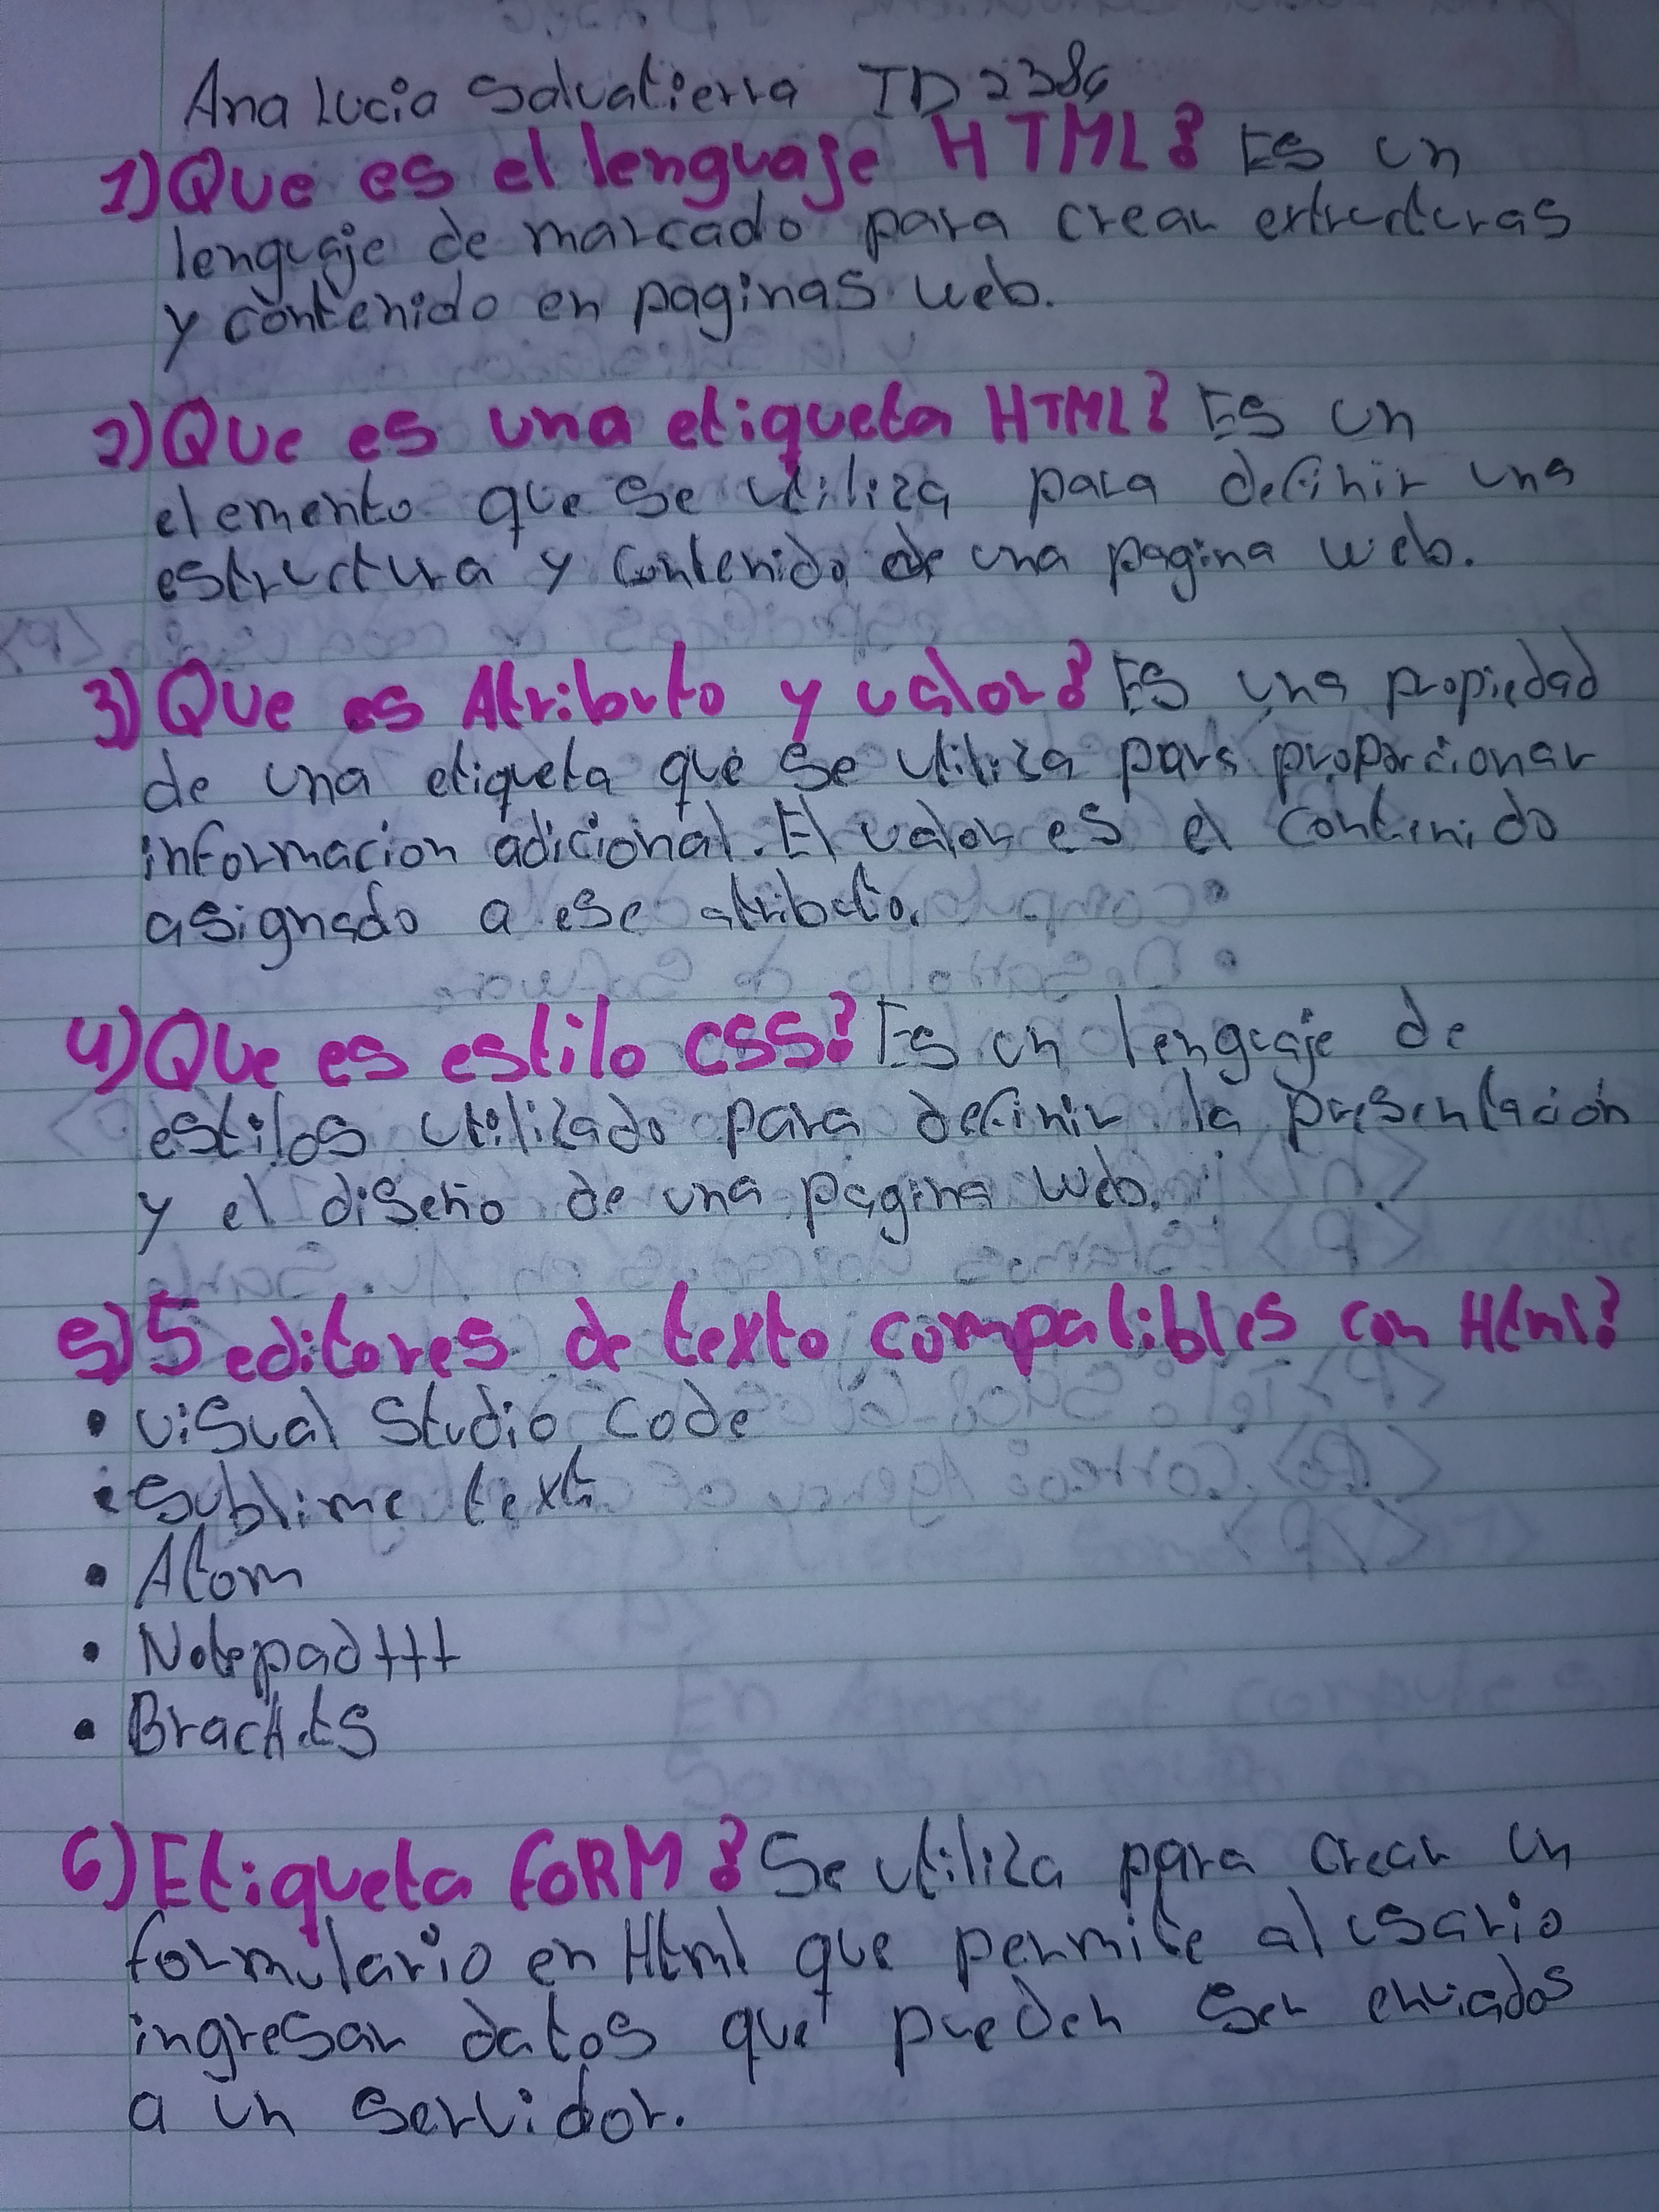 Ana Lucia Salvatierra ID 2384
1) Que es el lenguaje HTML? Es un
lenguaje de marcado para crear extructuras
y contenido en paginas web.
2) Que es una etiqueta HTML? Es un
elemento que se utiliza para definir una
estructura y contenido de una pagina web.
3) Que es Atributo y valor? Es una propiedad
de una etiqueta que se utiliza para proporcionar
informacion adicional. El valor es el contenido
asignado a ese atributo.
4) Que es estilo CSS? Es un lenguaje de
estilos utilizado para definir la presentación
y el diseño de una pagina web.
5) 5 editores de texto compatibles con Html?
• Visual Studio Code
• Sublime text
• Atom
• Notepad+++
• Brackets
6) Etiqueta FORM? Se utiliza para crear un
formulario en Html que permite al usario
ingresar datos que pueden ser enviados
a un servidor.